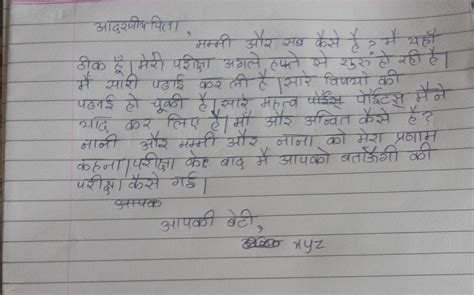 आदरणीय पिता,
मम्मी और सब कैसे है ? मै यहाँ
ठीक हूँ। मेरी परीक्षा अगले हफ्ते से शुरु हो रही है।
मै सारी पढाई कर ली है। सारे विषयो की
पढाई हो चूकी है। सारे महत्व पोईंटस मैने
याद कर लिए है। माँ और अन्वित कैसे है ?
नानी और मम्मी और नाना को मेरा प्रणाम
कहना। परीक्षा के बाद मै आपको बताऊँगी की
परीक्षा कैसे गई।
आपक
आपकी बेटी,
xyz